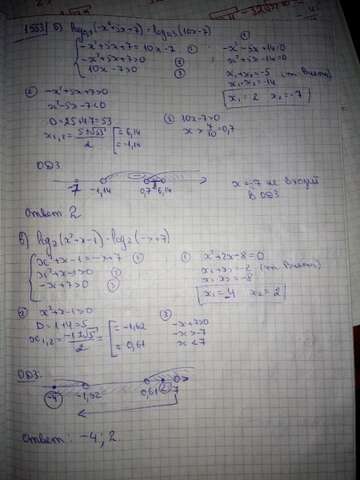 1553 б) log₀,₃(-x²+5x+7) = log₀,₃(10x-7)
{ -x²+5x+7 = 10x-7 ①
-x²+5x+7>0 ②
10x-7>0 ③
① -x²-5x+14=0
x²+5x-14=0
x₁+x₂=-5 (т. Виета)
x₁·x₂=-14
x₁=2 x₂=-7
② -x²+5x+7>0
x²-5x-7<0
D=25+47=53
x₁,₂ = (5±√53)/2 [ = 6,14
= -1,14
③ 10x-7>0
x > 7/10 = 0,7
ОДЗ
-7 -1,14 0,7 6,14
x=-7 не входит
в ОДЗ
Ответ 2
в) log₂(x²+x-1) = log₂(-x+7)
{ x²+x-1=-x+7 ①
x²+x-1>0 ②
-x+7>0 ③
① x²+2x-8=0
x₁+x₂=-2 (т. Виета)
x₁·x₂=-8
x₁=-4 x₂=2
② x²+x-1>0
D=1+4=5
x₁,₂ = (-1±√5)/2 = [ = -1,62
= 0,61
③ -x+7>0
-x>-7
x<7
ОДЗ:
-4 -1,62 0,61 2 7
Ответ: -4; 2